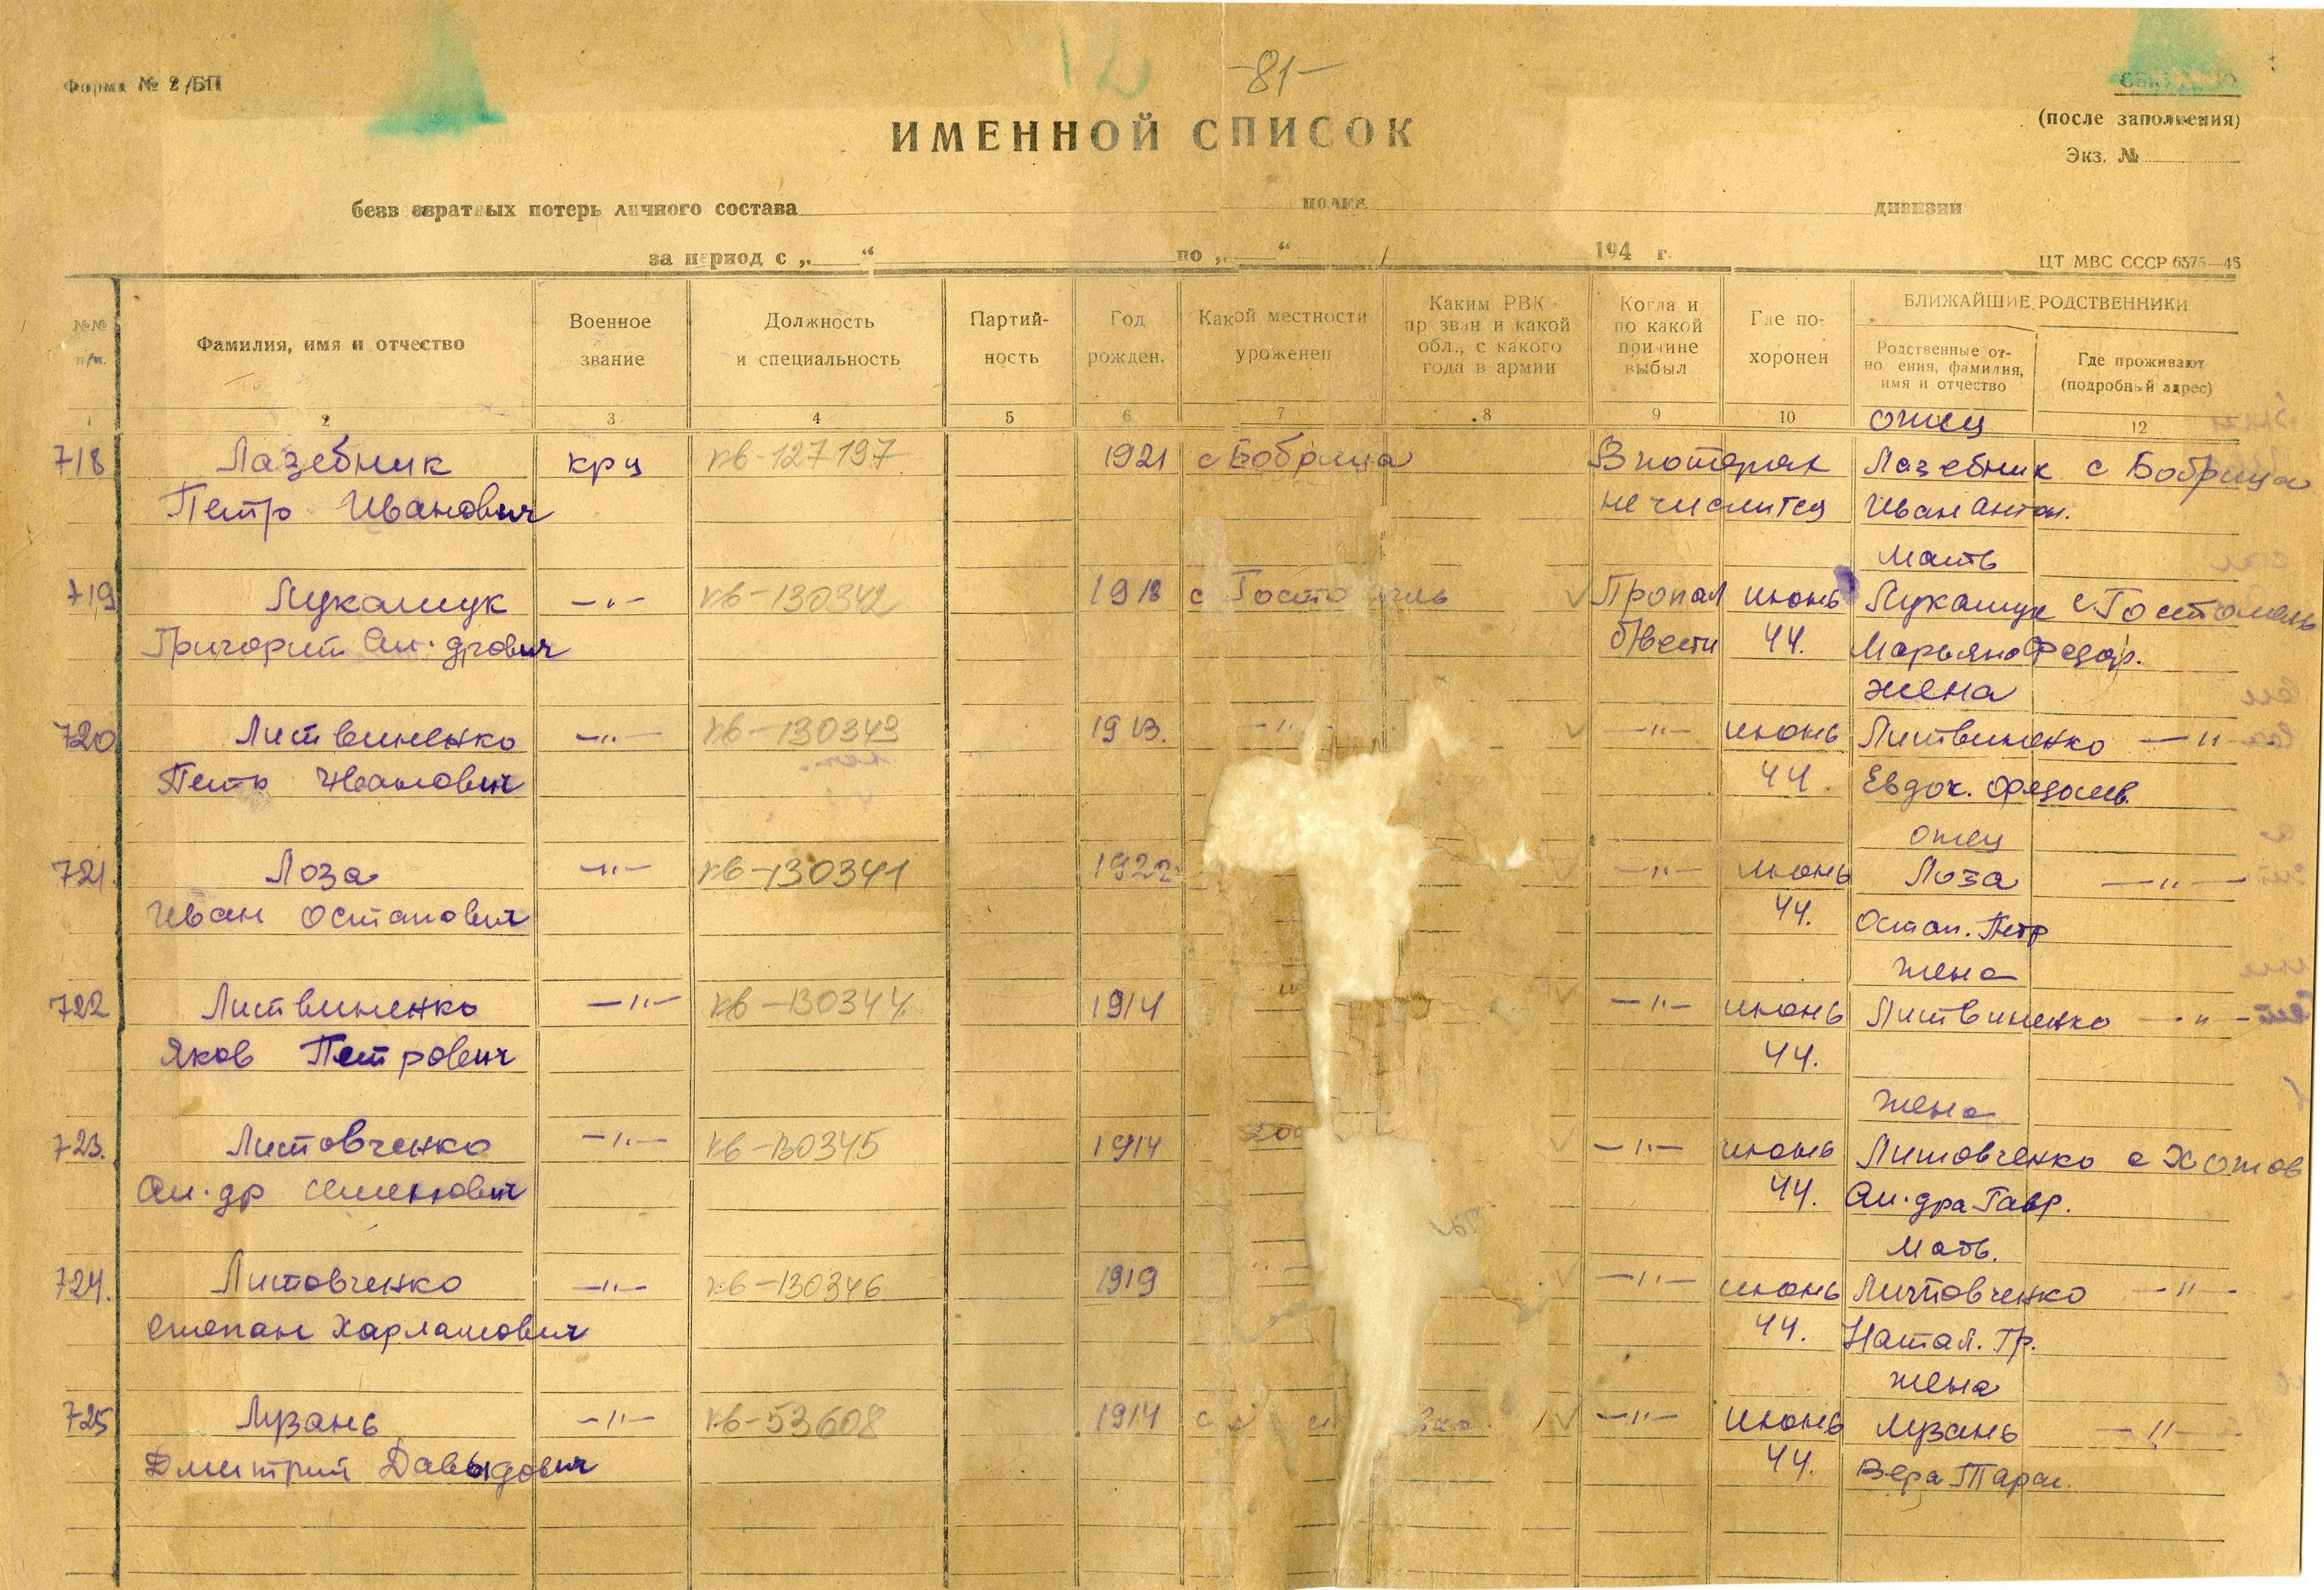 -81-
Форма № 2/БП
(после заполнения)
ИМЕННОЙ СПИСОК
Экз. №
безвозвратных потерь личного состава полка дивизии
за период с „ “ по „ “ 194 г.
ЦТ МВС СССР 6575—48
№№ п/п.
Фамилия, имя и отчество
Военное звание
Должность и специальность
Партийность
Год рожден.
Какой местности уроженец
Каким РВК призван и какой обл., с какого года в армии
Когда и по какой причине выбыл
Где похоронен
БЛИЖАЙШИЕ РОДСТВЕННИКИ
Родственные отношения, фамилия, имя и отчество
Где проживают (подробный адрес)
1 2 3 4 5 6 7 8 9 10 12
отец
718 Лазебник крц кв-127197 1921 с Бобрица В потерях Лазебник с Бобрица
Петр Иванович не числится Иван Антон.
мать
719 Лукашук —"— кв-130342 1918 с Гостомель Пропал июнь Лукашук с. Гостомель
Григорий Ал-дрович б/вести 44. Марьяна Федор.
жена
720 Литвиненко —"— кв-130343 1913. —"— —"— июнь Литвиненко —"—
Петр Иванович 44 Евдок.
отец
721. Лоза —"— кв-130341 1922 —"— июнь Лоза —"—
Иван Остапович 44. Остап. Петр
жена
722 Литвиненко —"— кв-130344 1914 —"— июнь Литвиненко —"—
Яков Петрович 44.
жена
723. Литовченко —"— кв-130345 1914 —"— июнь Литовченко с Хотов
Ал-др Семенович 44. Ал-дра Гавр.
мать.
724. Литовченко —"— кв-130346 1919 —"— июнь Литовченко —"—
Степан Харлампович 44. Натал. Гр.
жена
725 Лузань —"— кв-53608 1914 с —"— июнь Лузань —"—
Дмитрий Давыдович 44. Вера Тарас.